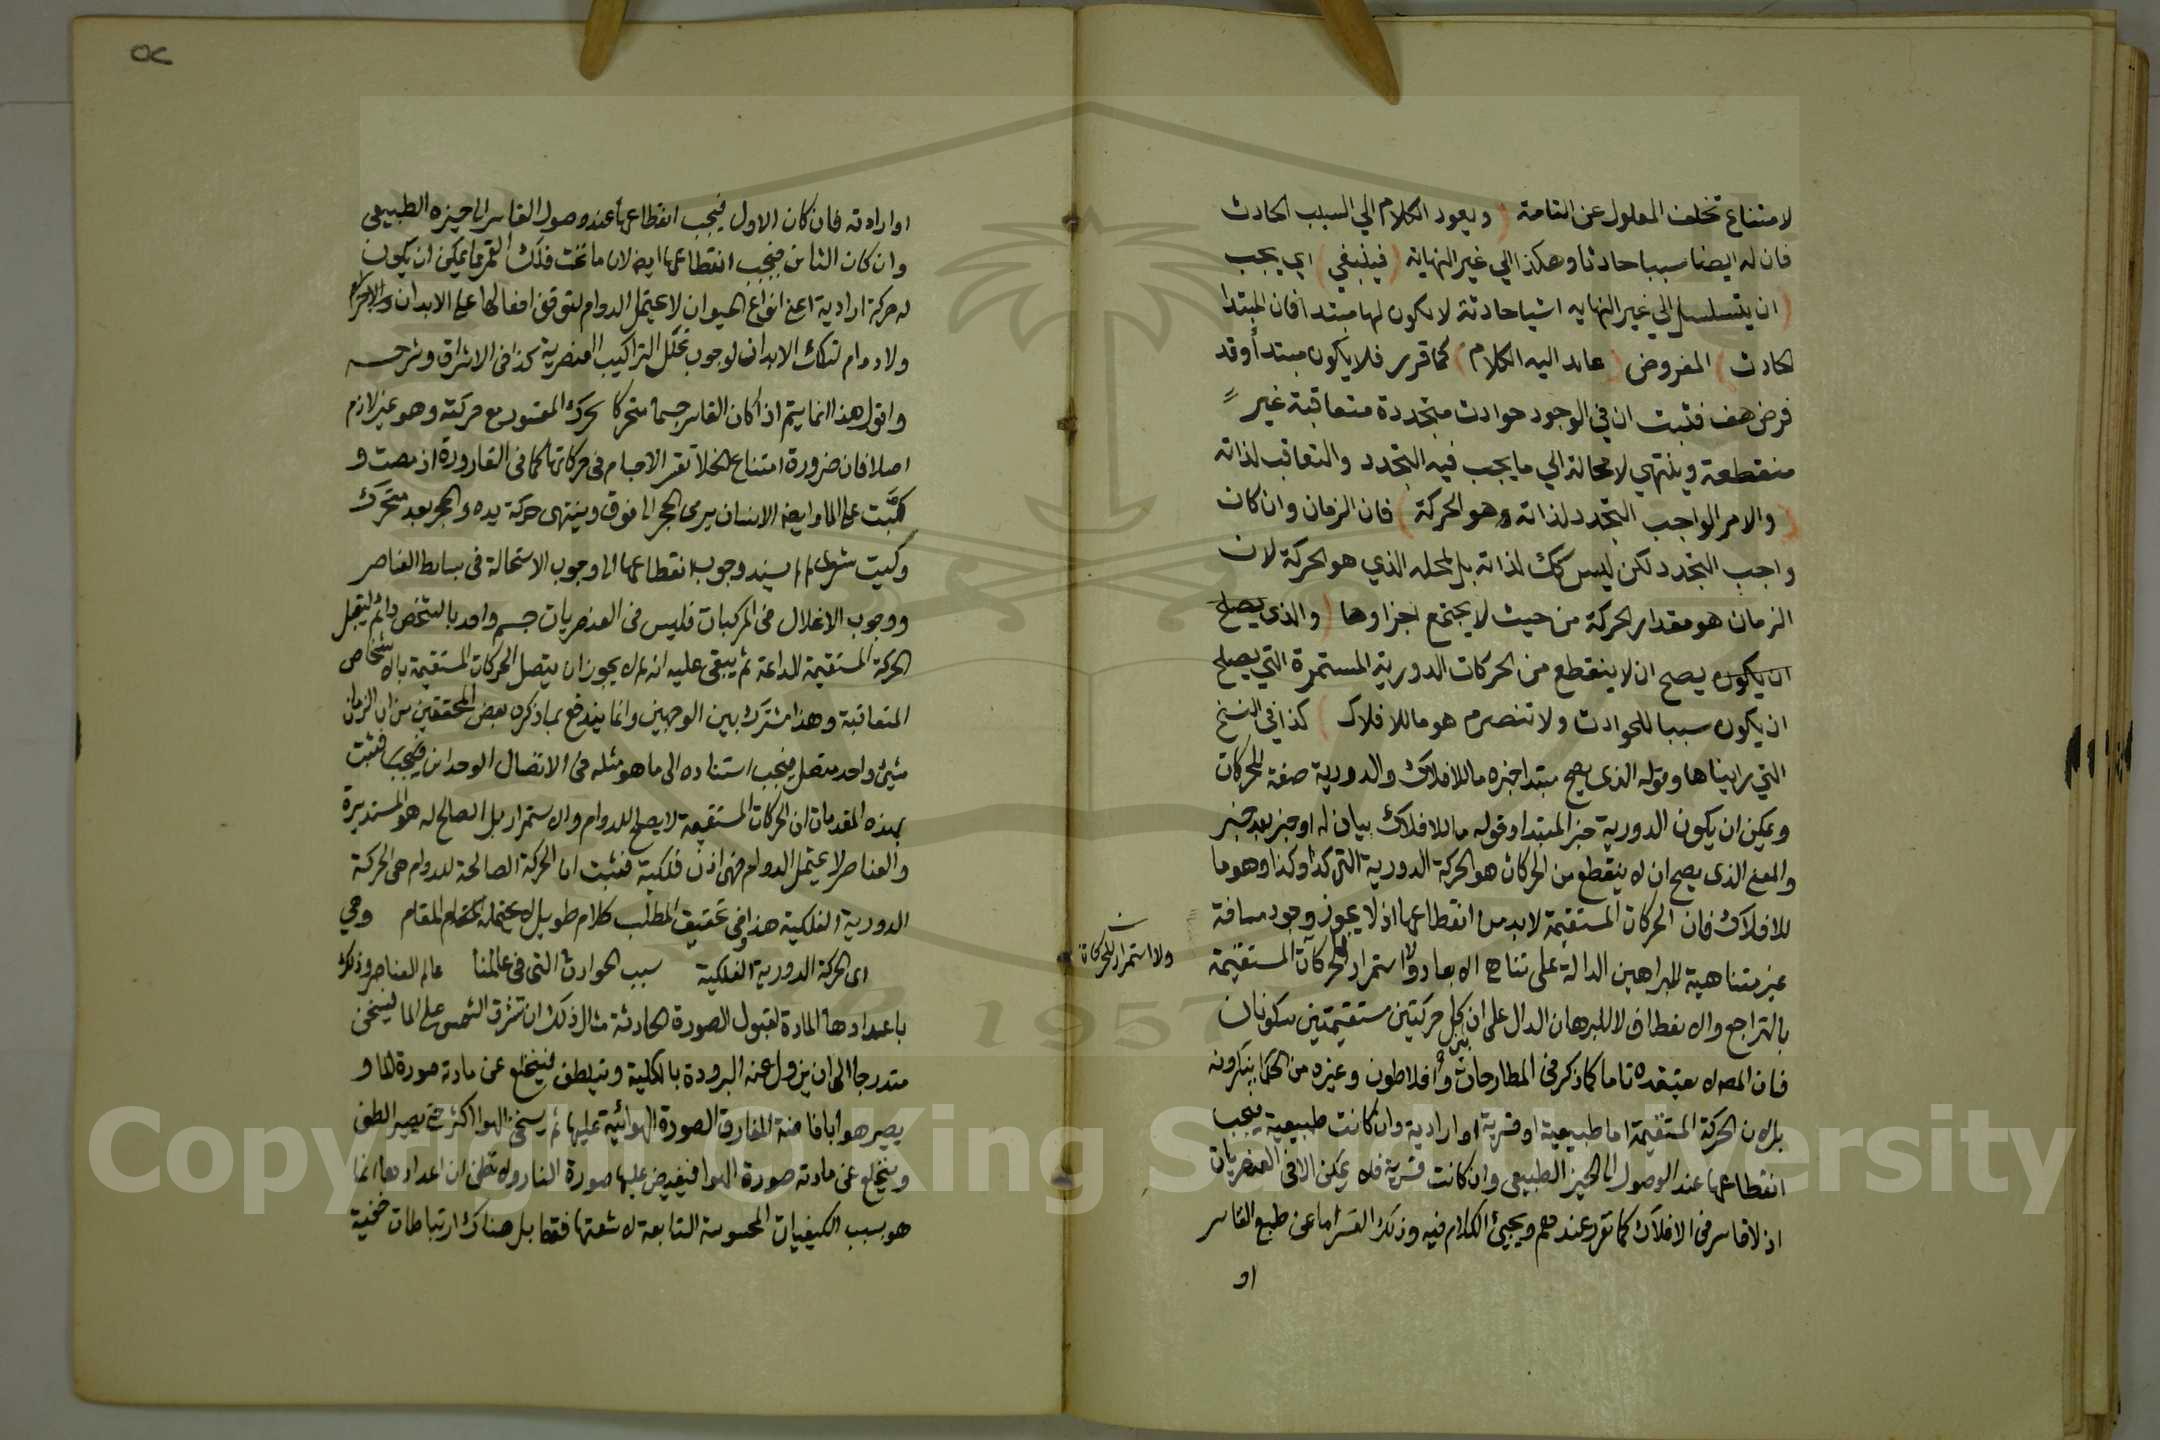 لامتناع تخلف المعلول عن التامة ( ويعود الكلام الي السبب الحادث
فان له ايضا سببا حادثا وهكذا الي غير النهاية ( فينبغي ) اي يجب
( ان يتسلسل الي غير النهايه اشيا حادثة لا يكون لها مبتدا فان المبتدا
الحادث ) المفروض ( عايد اليه الكلام ) كما قرر فلا يكون مبتدأ وقد
فرض هف فثبت ان في الوجود حوادث متجددة متعاقبة غير
منقطعة وينتهي لا محالة الي ما يجب فيه التجدد والتعاقب لذاته
( والامر الواجب التجدد لذاته وهو الحركة ) فان الزمان وان كان
واجب التجدد لكن ليس كك لذاته بل لمحله الذي هو الحركة لان
الزمان هو مقدار الحركة من حيث لا يجتمع اجزاوها ( والذي يصلح
ان يكون يصح ان لا ينقطع من الحركات الدورية المستمرة التي يصلح
ان يكون سببا للحوادث ولا تنصرم هو ما للافلاك ) كذا في النسخ
التي رايناها وقوله الذي يصح مبتدا خبره ما للافلاك والدورية صفة للحركات
ويمكن ان يكون الدورية خبر المبتدا وقوله ما للافلاك بيان له او خبر بعد خبر
والمعنى الذي يصح ان لا ينقطع من الحركات هو الحركة الدورية التي كذا وكذا وهو ما
للافلاك فان الحركات المستقيمة لا بد من انقطاعها اذ لا يجوز وجود مسافة
غير متناهية للبراهين الدالة على تناهي الابعاد ولا استمرار للحركات المستقيمة
ولا استمرار للحركات
بالتراجع والانعطاف لا للبرهان الدال على ان بين كل حركتين مستقيمتين سكونا
فان المص لا يعتقده تاما كما ذكر في المطارحات وافلاطون وغيره من الحكما ينكرونه
بل لان الحركة المستقيمة اما طبيعية او قسرية او ارادية وان كانت طبيعية فيجب
انقطاعها عند الوصول الى الحيز الطبيعي وان كانت قسرية فلا يمكن الا في العنصريات
اذ لا قاسر في الافلاك كما تقرر عندهم ويجيئ الكلام فيه وذلك القسر اما عن طبع القاسر
او
٥٢
او ارادته فان كان الاول فيجب انقطاعها عند وصول القاسر الى حيزه الطبيعي
وان كان الثاني فيجب انقطاعها ايضا لان ما تحت فلك القمر مما يمكن ان يكون
له حركة ارادية اعني انواع الحيوان لا يحتمل الدوام لتوقف افعالها على الابدان
ولا دوام لتلك الابدان لوجوب تحلل التراكيب العنصرية كذا في الاشراق وشرحه
واقول هذا انما يتم اذا كان القاسر جسما متحركا يحرك المقسور مع حركته وهو غير لازم
اصلا فان ضرورة امتناع الخلا تقسر الاجسام في حركاتها كما في القارورة اذ مصت و
كبت على الما وايضا الانسان يرمى الحجر الى فوق وينتهى حركة يده والحجر بعد متحرك
وكيت يسند وجوب انقطاعها الى وجوب الاستحالة في بسايط العناصر
ووجوب الانحلال في المركبات فليس في العنصريات جسم واحد بالشخص دائم ليقبل
الحركة المستقيمة الدائمة ثم يبقى عليه انه لم لا يجوز ان يتصل الحركات المستقيمة بالاشخاص
المتعاقبة وهذا مشترك بين الوجهين وانما يندفع بما ذكره بعض المحققين من ان الزمان
شيئ واحد متصل فيجب استناده الى ما هو مثله في الاتصال الوحداني فيجب فثبت
بهذه المقدمات ان الحركات المستقيمة لا يصلح للدوام والاستمرار بل الصالح له هو المستديرة
والعناصر لا يحتمل الدوام فهي اذن فلكية فثبت ان الحركة الصالحة للدوام هي الحركة
الدورية الفلكية هذا وفي تحقيق المطلب كلام طويل لا يحتمله المقام وهي
اى الحركة الدورية الفلكية سبب الحوادث التي في عالمنا عالم العناصر وذلك
باعدادها المادة لقبول الصورة الحادثة مثال ذلك ان تشرق الشمس على الما فيسخن
متدرجا الى ان يزول عنه البرودة بالكلية ويتلطف فينخلع عن مادته صورة الما و
يصير هوا بافاضة المفارق الصورة الهوائية عليها ثم يسخن الهوا اكثر حتى يصير الطف
وينخلع عن مادته صورة الهوا فيفيض عليها صورة النار ولا تظن ان اعدادها انما
هو بسبب الكيفيات المحسوسة التابعة لاشعتها فقط بل هناك ارتباطات خفية